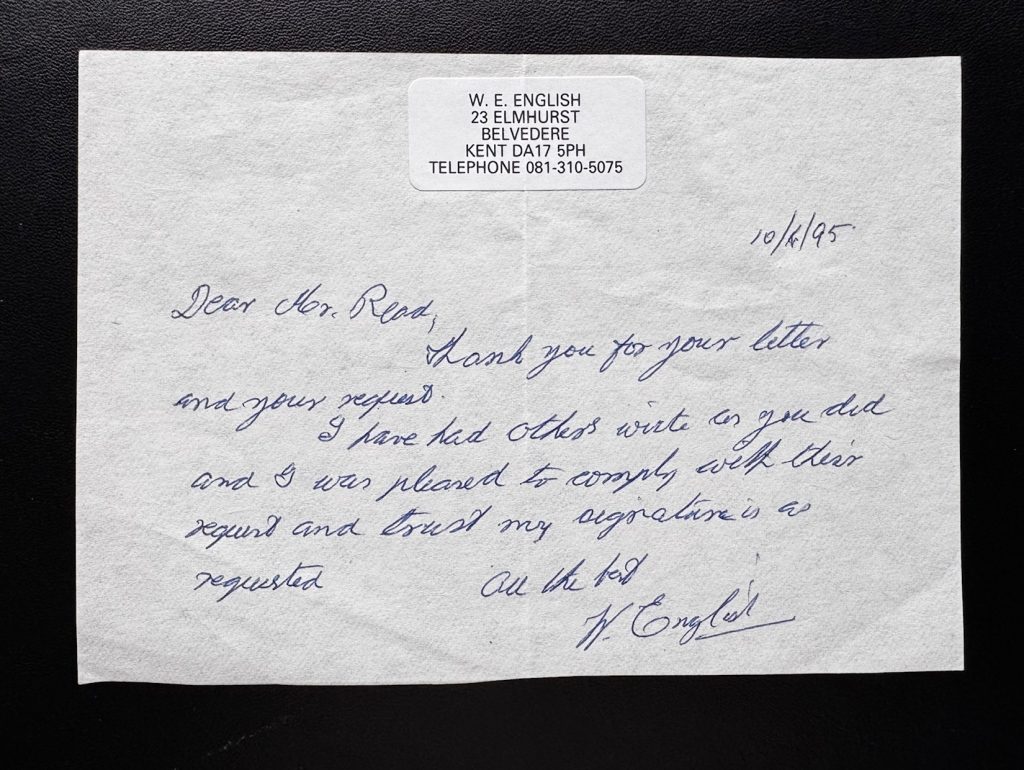 W. E. ENGLISH
23 ELMHURST
BELVEDERE
KENT DA17 5PH
TELEPHONE 081-310-5075
10/4/95
Dear Mr. Read,
Thank you for your letter
and your request.
I have had others write as you did
and I was pleased to comply with their
request and trust my signature is as
requested
All the best
W. English